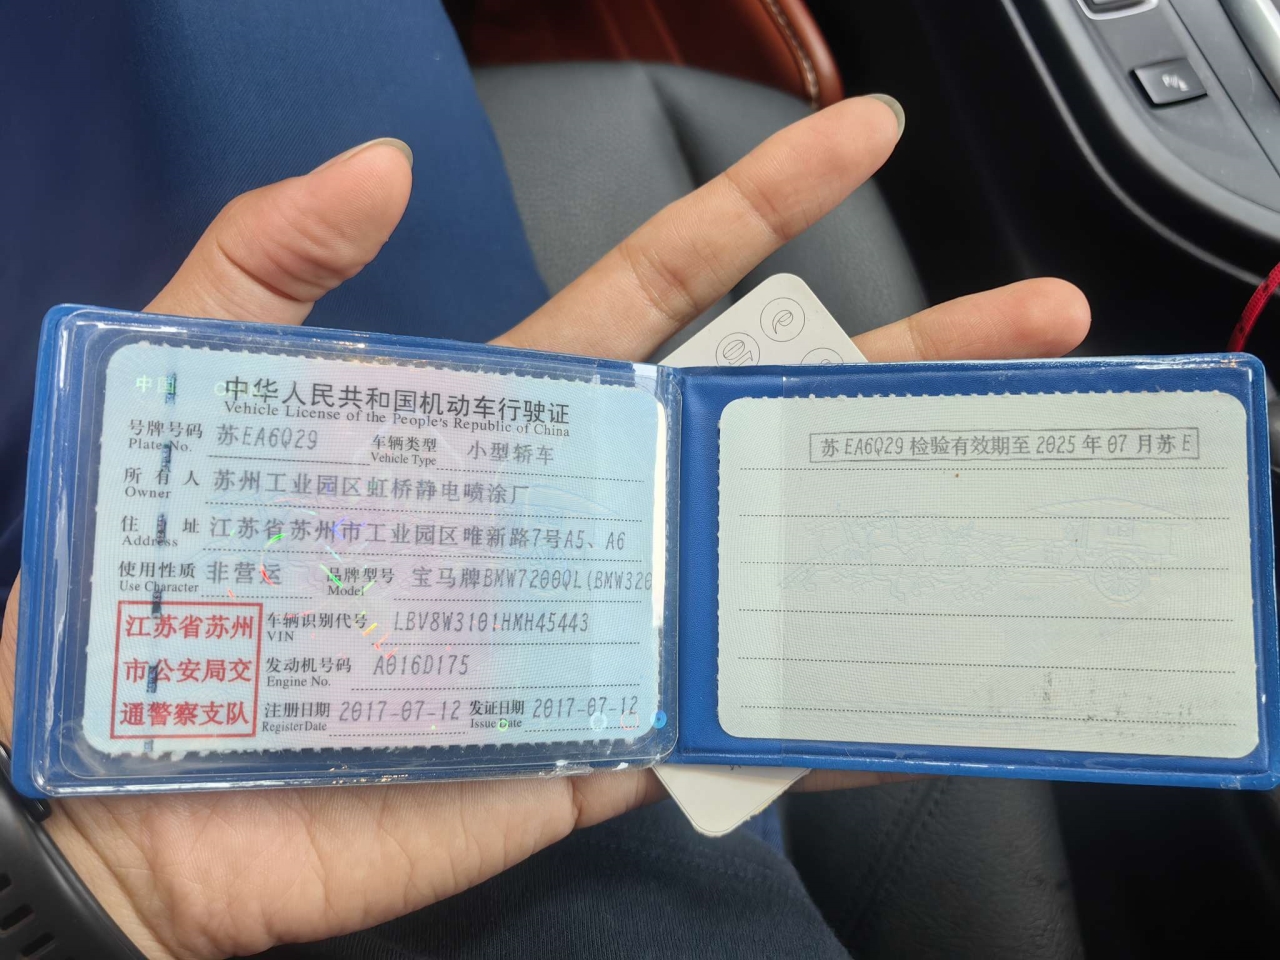 中国
中华人民共和国机动车行驶证
Vehicle License of the People's Republic of China
号牌号码 苏EA6Q29 车辆类型 小型轿车
Plate No. Vehicle Type
所有人 苏州工业园区虹桥静电喷涂厂
Owner
住址 江苏省苏州市工业园区唯新路7号A5、A6
Address
使用性质 非营运 品牌型号 宝马牌BMW7200QL(BMW320
Use Character Model
江苏省苏州
市公安局交
通警察支队
车辆识别代号 LBV8W3101HMH45443
VIN
发动机号码 A016D175
Engine No.
注册日期 2017-07-12 发证日期 2017-07-12
Register Date Issue Date
苏EA6Q29检验有效期至2025年07月苏E